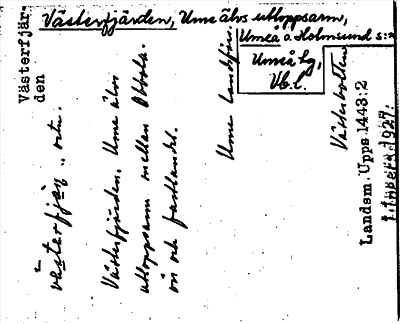 Västerfjärden, Ume älvs utloppsarm,
Umeå o. Holmsund s:n
Umeå lg,
Vb. l.
Västerfjär-
den
Västerfjärden. Ume älvs
utloppsarm mellan Obbola-
ön och fastlandet.
Ume landsförs.
Västerbotten
Landsm. Upps. 1443:2
1927.